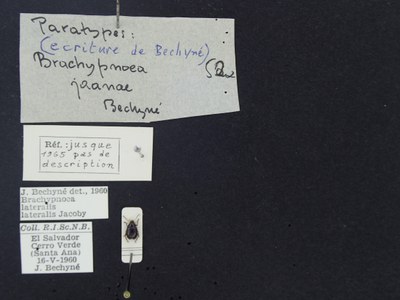 Paratypes:
(écriture de Bechyné)
Brachypnoea
jaanae
Bechyné
Réf.: jusque
1965 pas de
description
J. Bechyné det., 1960
Brachypnoea
lateralis
lateralis Jacoby
Coll. R.I.Sc.N.B.
El Salvador
Cerro Verde
(Santa Ana)
16-V-1960
J. Bechyné